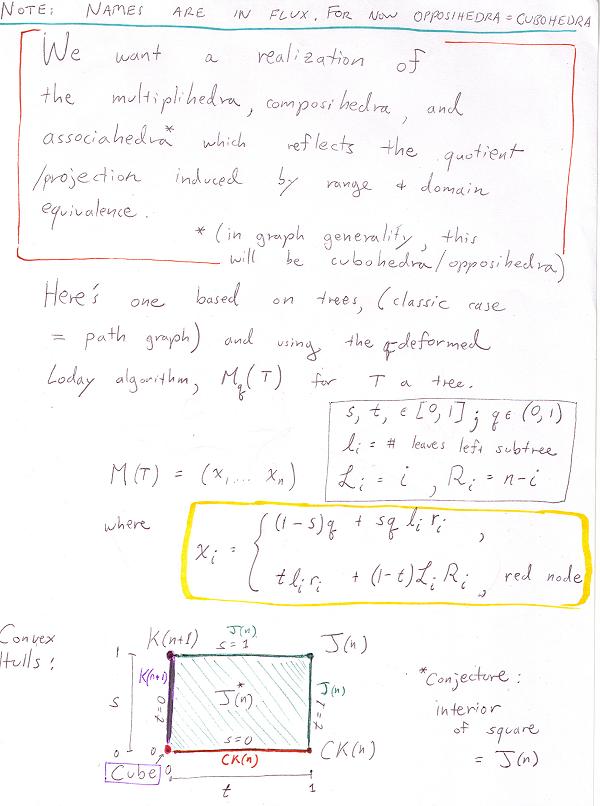 NOTE: NAMES ARE IN FLUX. FOR NOW OPPOSIHEDRA = CUBOHEDRA
We want a realization of
the multiplihedra, composihedra, and
associahedra* which reflects the quotient
/projection induced by range & domain
equivalence.
* (in graph generality, this
will be cubohedra/opposihedra)
Here's one based on trees, (classic case
= path graph) and using the q-deformed
Loday algorithm, M_q(T) for T a tree.
s, t, ∈ [0,1]; q ∈ (0,1)
l_i = # leaves left subtree
L_i = i, R_i = n-i
M(T) = (x_1 ... x_n)
where
x_i = { (1-s)q + sq l_i r_i,
t l_i r_i + (1-t) L_i R_i, red node
Convex
Hulls:
K(n+1) J(n) J(n)
s=1
1
K(n+1)
t=0
s
J(n)*
J(n)
t=1
s=0
0 0 CK(n) CK(n)
Cube
0 t 1
*Conjecture:
interior
of square
= J(n)